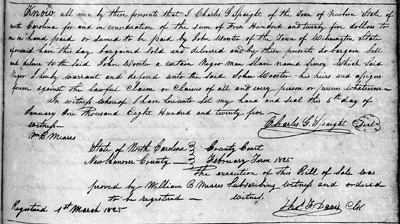 Know all men by these presents that I Charles G Spaight of the Town of Newbern State of
North Carolina for and in consideration of the sum of Two Hundred and twenty five dollars to
me in hand paid or secured to be paid by John Wooster of the Town of Wilmington State
aforesaid have this day bargained sold and delivered and by these presents do bargain sell
and deliver to the said John Wooster a certain Negro man Slave named which said
Negro I hereby warrant and defend unto the said John Wooster his heirs and assigns
forever against the lawful Claim or Claims of all and every person or persons whatsoever
In witness whereof I have hereunto set my hand and seal this 5th day of
January One Thousand Eight Hundred and twenty five
witness Charles G. Spaight Seal
Wm B Meares
State of North Carolina } County Court
New Hanover County } February Term 1825
The execution of this Bill of Sale was
proved by William B Meares Subscribing witness and ordered
to be registered witness,
Registered 1st March 1825 Clk